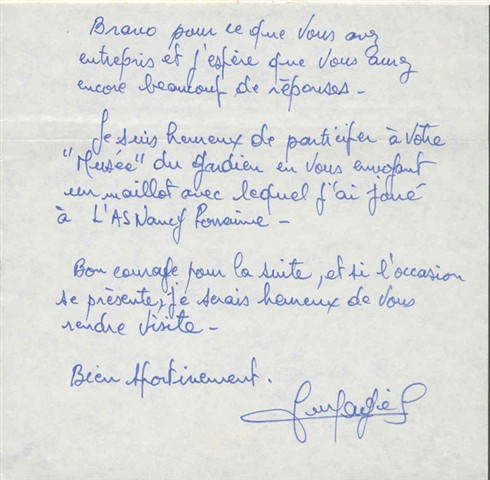 Bravo pour ce que vous avez
entrepris et j'espère que vous aurez
encore beaucoup de réponses -
Je suis heureux de participer à votre
"Musée" du gardien en vous envoyant
un maillot avec lequel j'ai joué
à L'ASNancy Lorraine -
Bon courage pour la suite, et si l'occasion
se présente, je serais heureux de vous
rendre visite -
Bien sportivement.